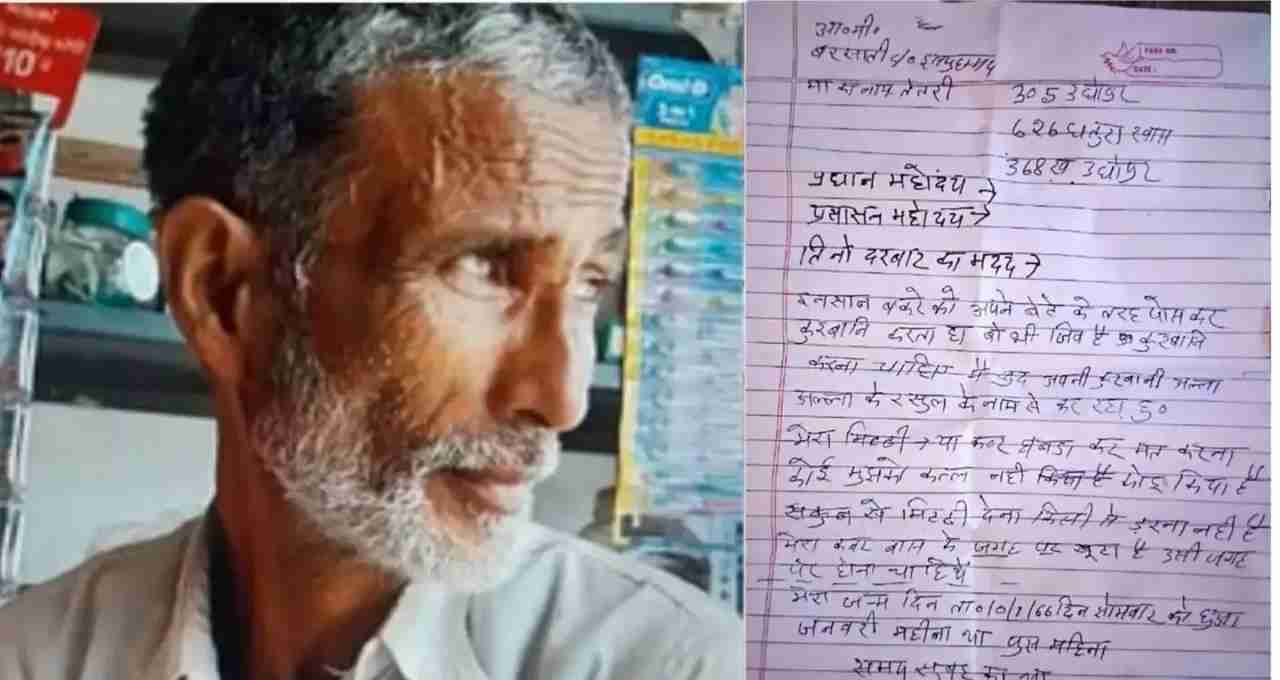 10
Oral-B
आ०मी०
बरसाती c/o
मा का नाम तेतरी
305 उधोपुर
626 धतुरा खास
368 ख. उधोपुर
PAGE NO:
DATE:
प्रधान महोदय →
प्रसासन महोदय →
तिनो दरबार का मदद →
इनसान बकरे को अपने बेटे के तरह पोस कर
कुरबानि करता है वो भी जिव है कुरबानि
करना चाहिए मै खुद अपनी कुरबानी अल्ला
अल्ला के रसुल के नाम से कर रहा हु०
मेरा मिटटी → या कबर घबडा कर मत करना
कोई मुझको कत्ल नही किया है
सकुन से मिटटी देना किसी से डरना नही है
मेरा कबर बास के जगह पर खुटा है उसी जगह
पर होना चाहिये
मेरा जन्म दिन ता०/0/1/66 दिन सोमवार को हुआ
जनवरी महीना था पुस महिना
समय सुबह का था